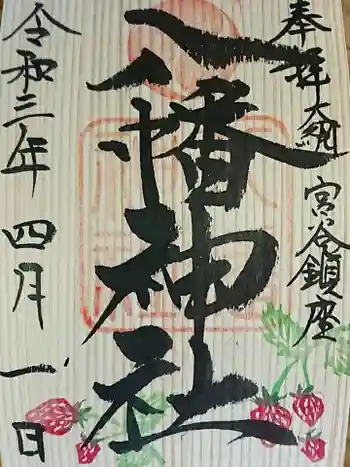 奉拝 大綱 宮谷鎮座
八幡神社
令和三年 四月一日